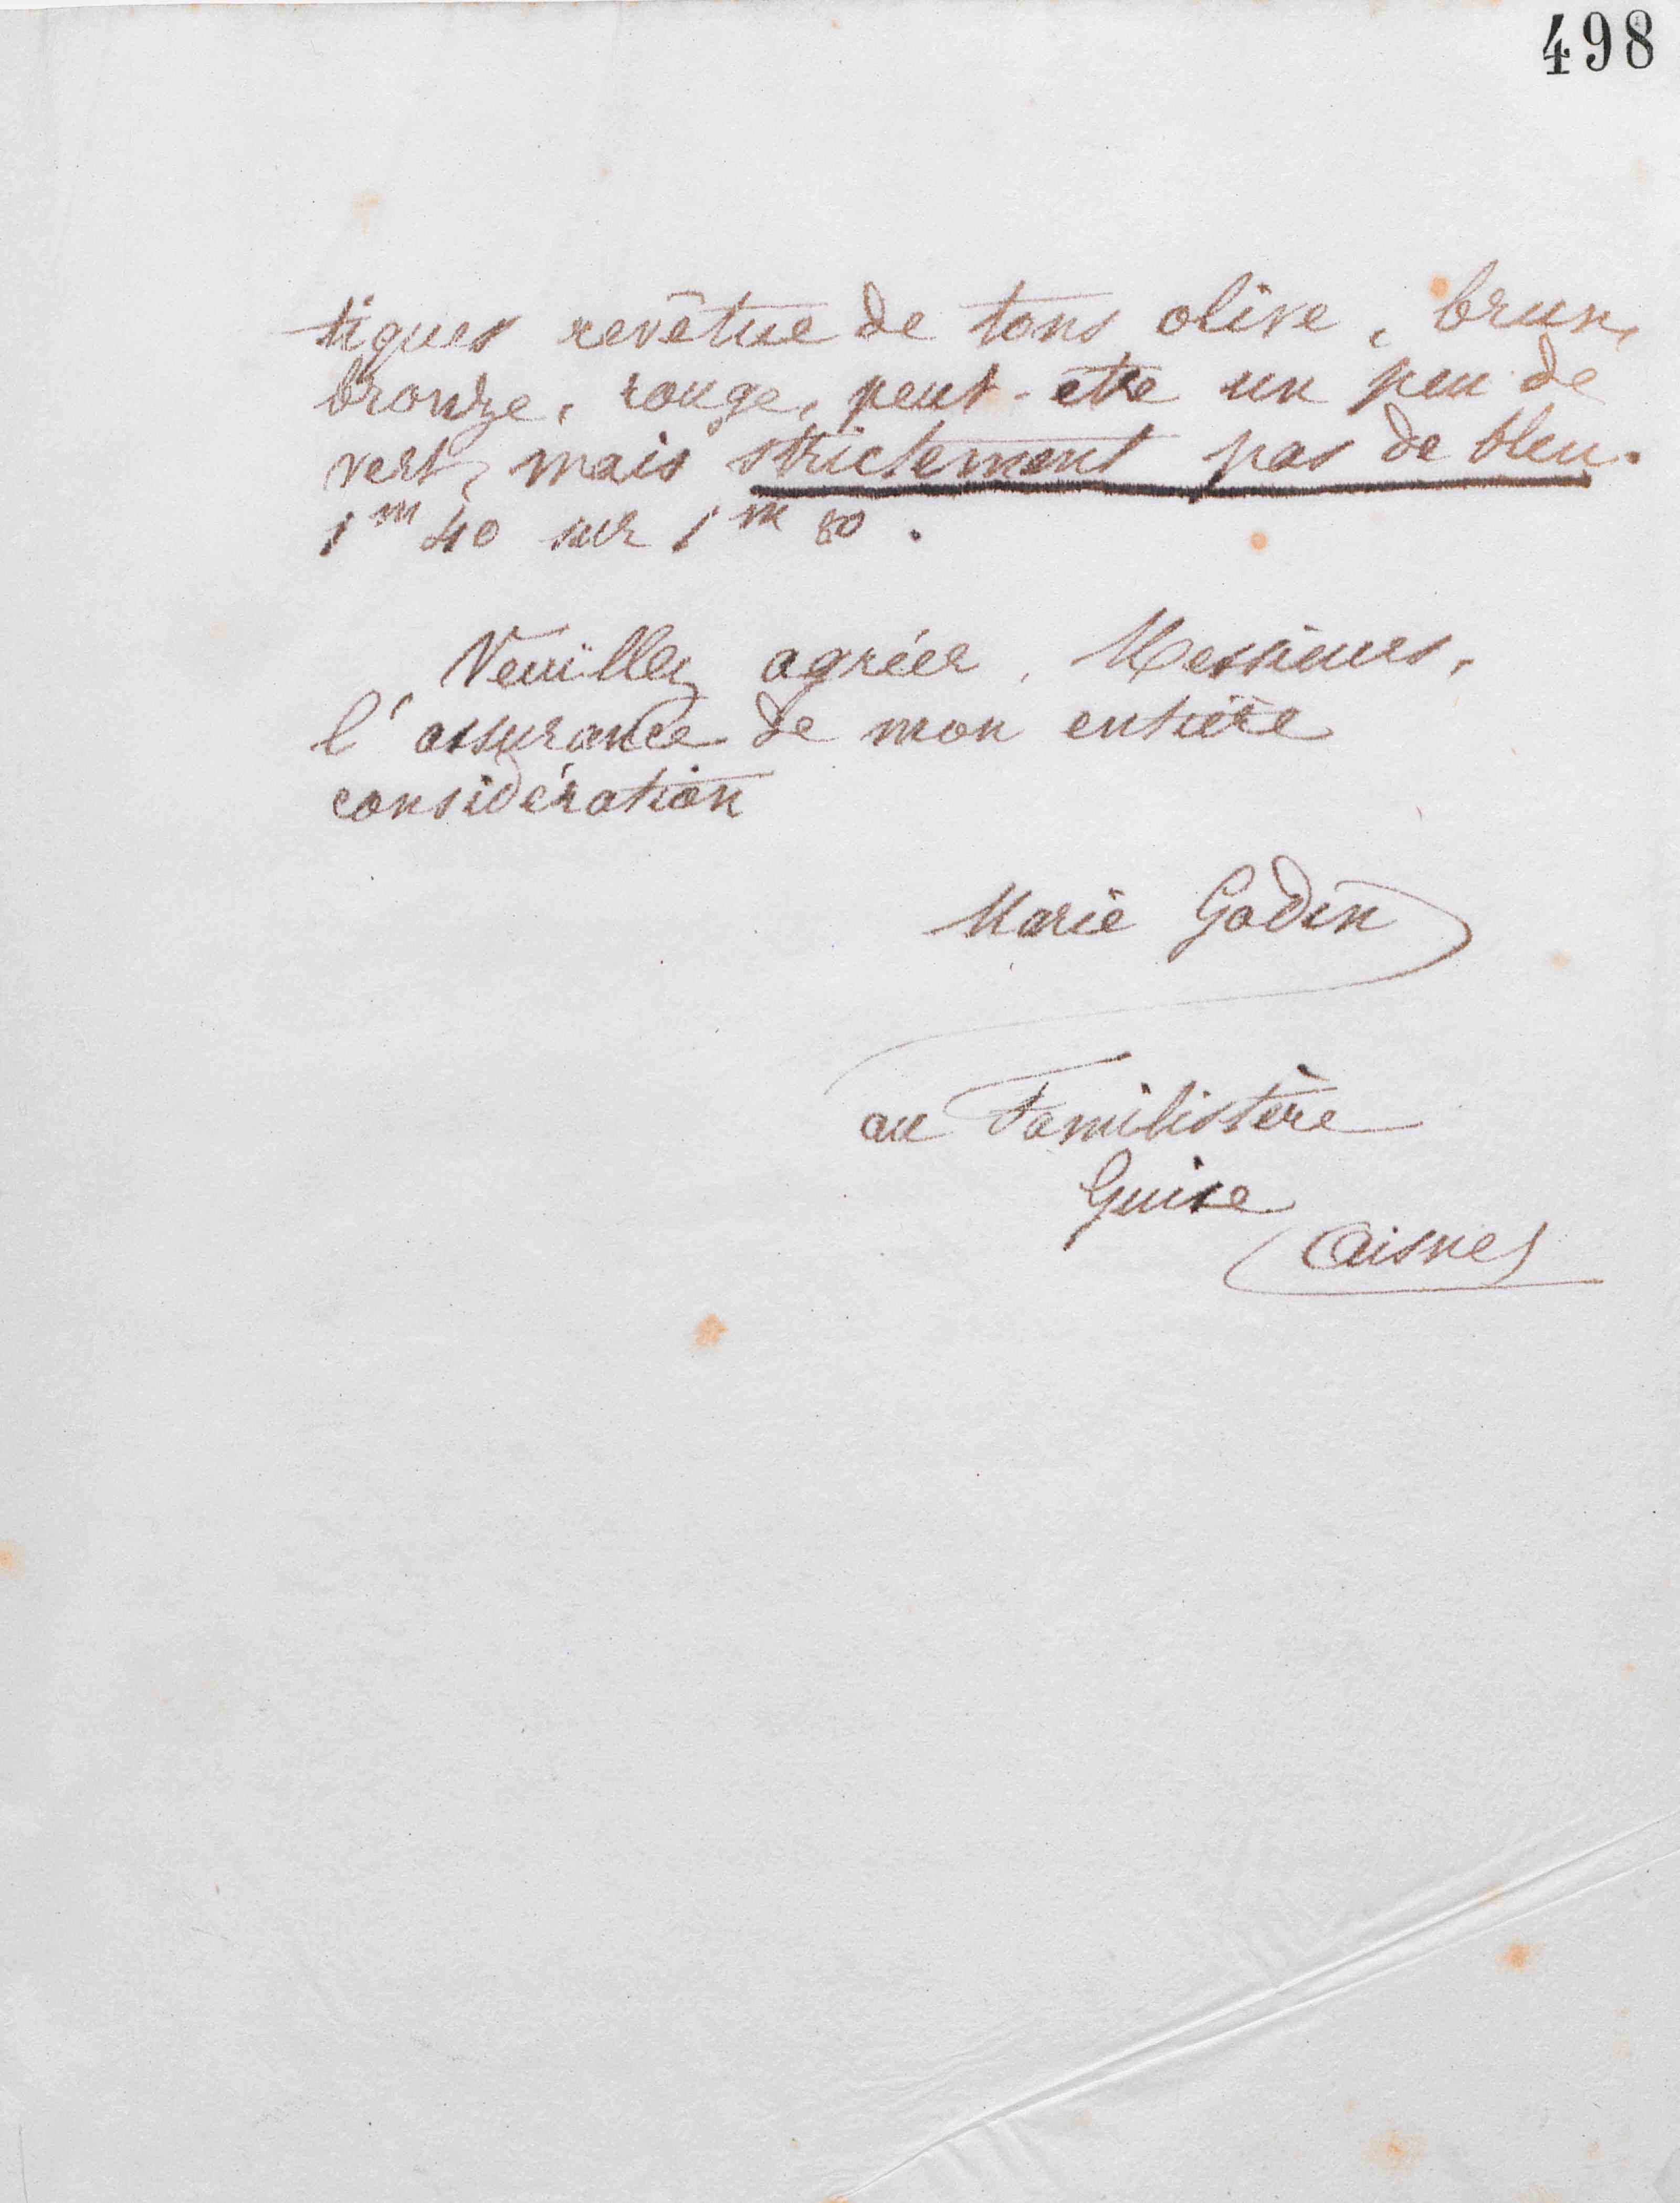 498
tiques revêtue de tons olive, brun,
bronze, rouge, peut-etre un peu de
vert, mais strictement pas de bleu.
1m 40 sur 1m 80.
Veuillez agréer, Messieurs,
l'assurance de mon entière
considération
Marie Godin
au Familistère
Guise
(Aisne)